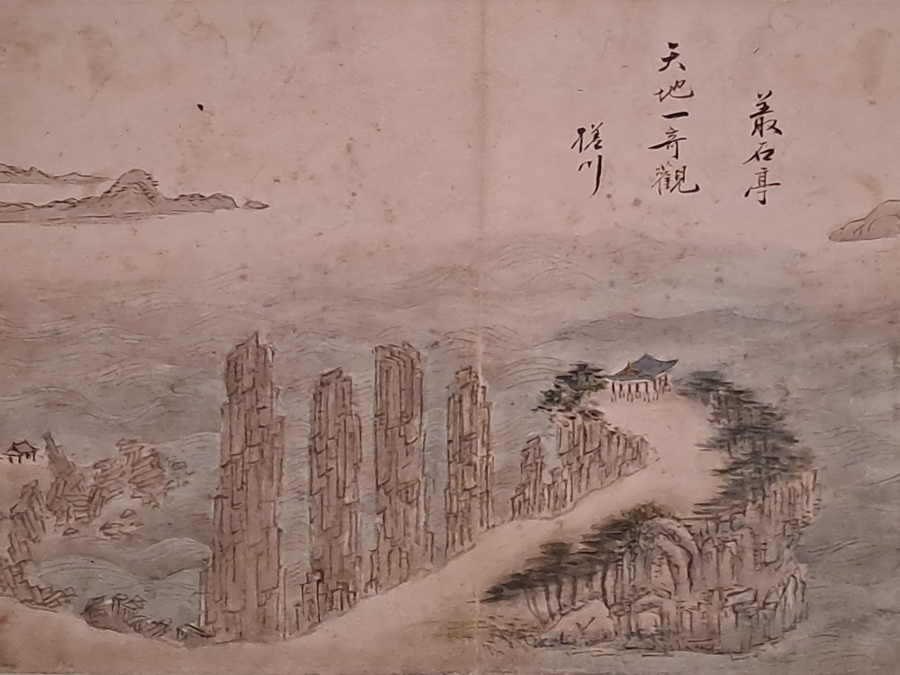 叢石亭
天地一奇觀
槎川